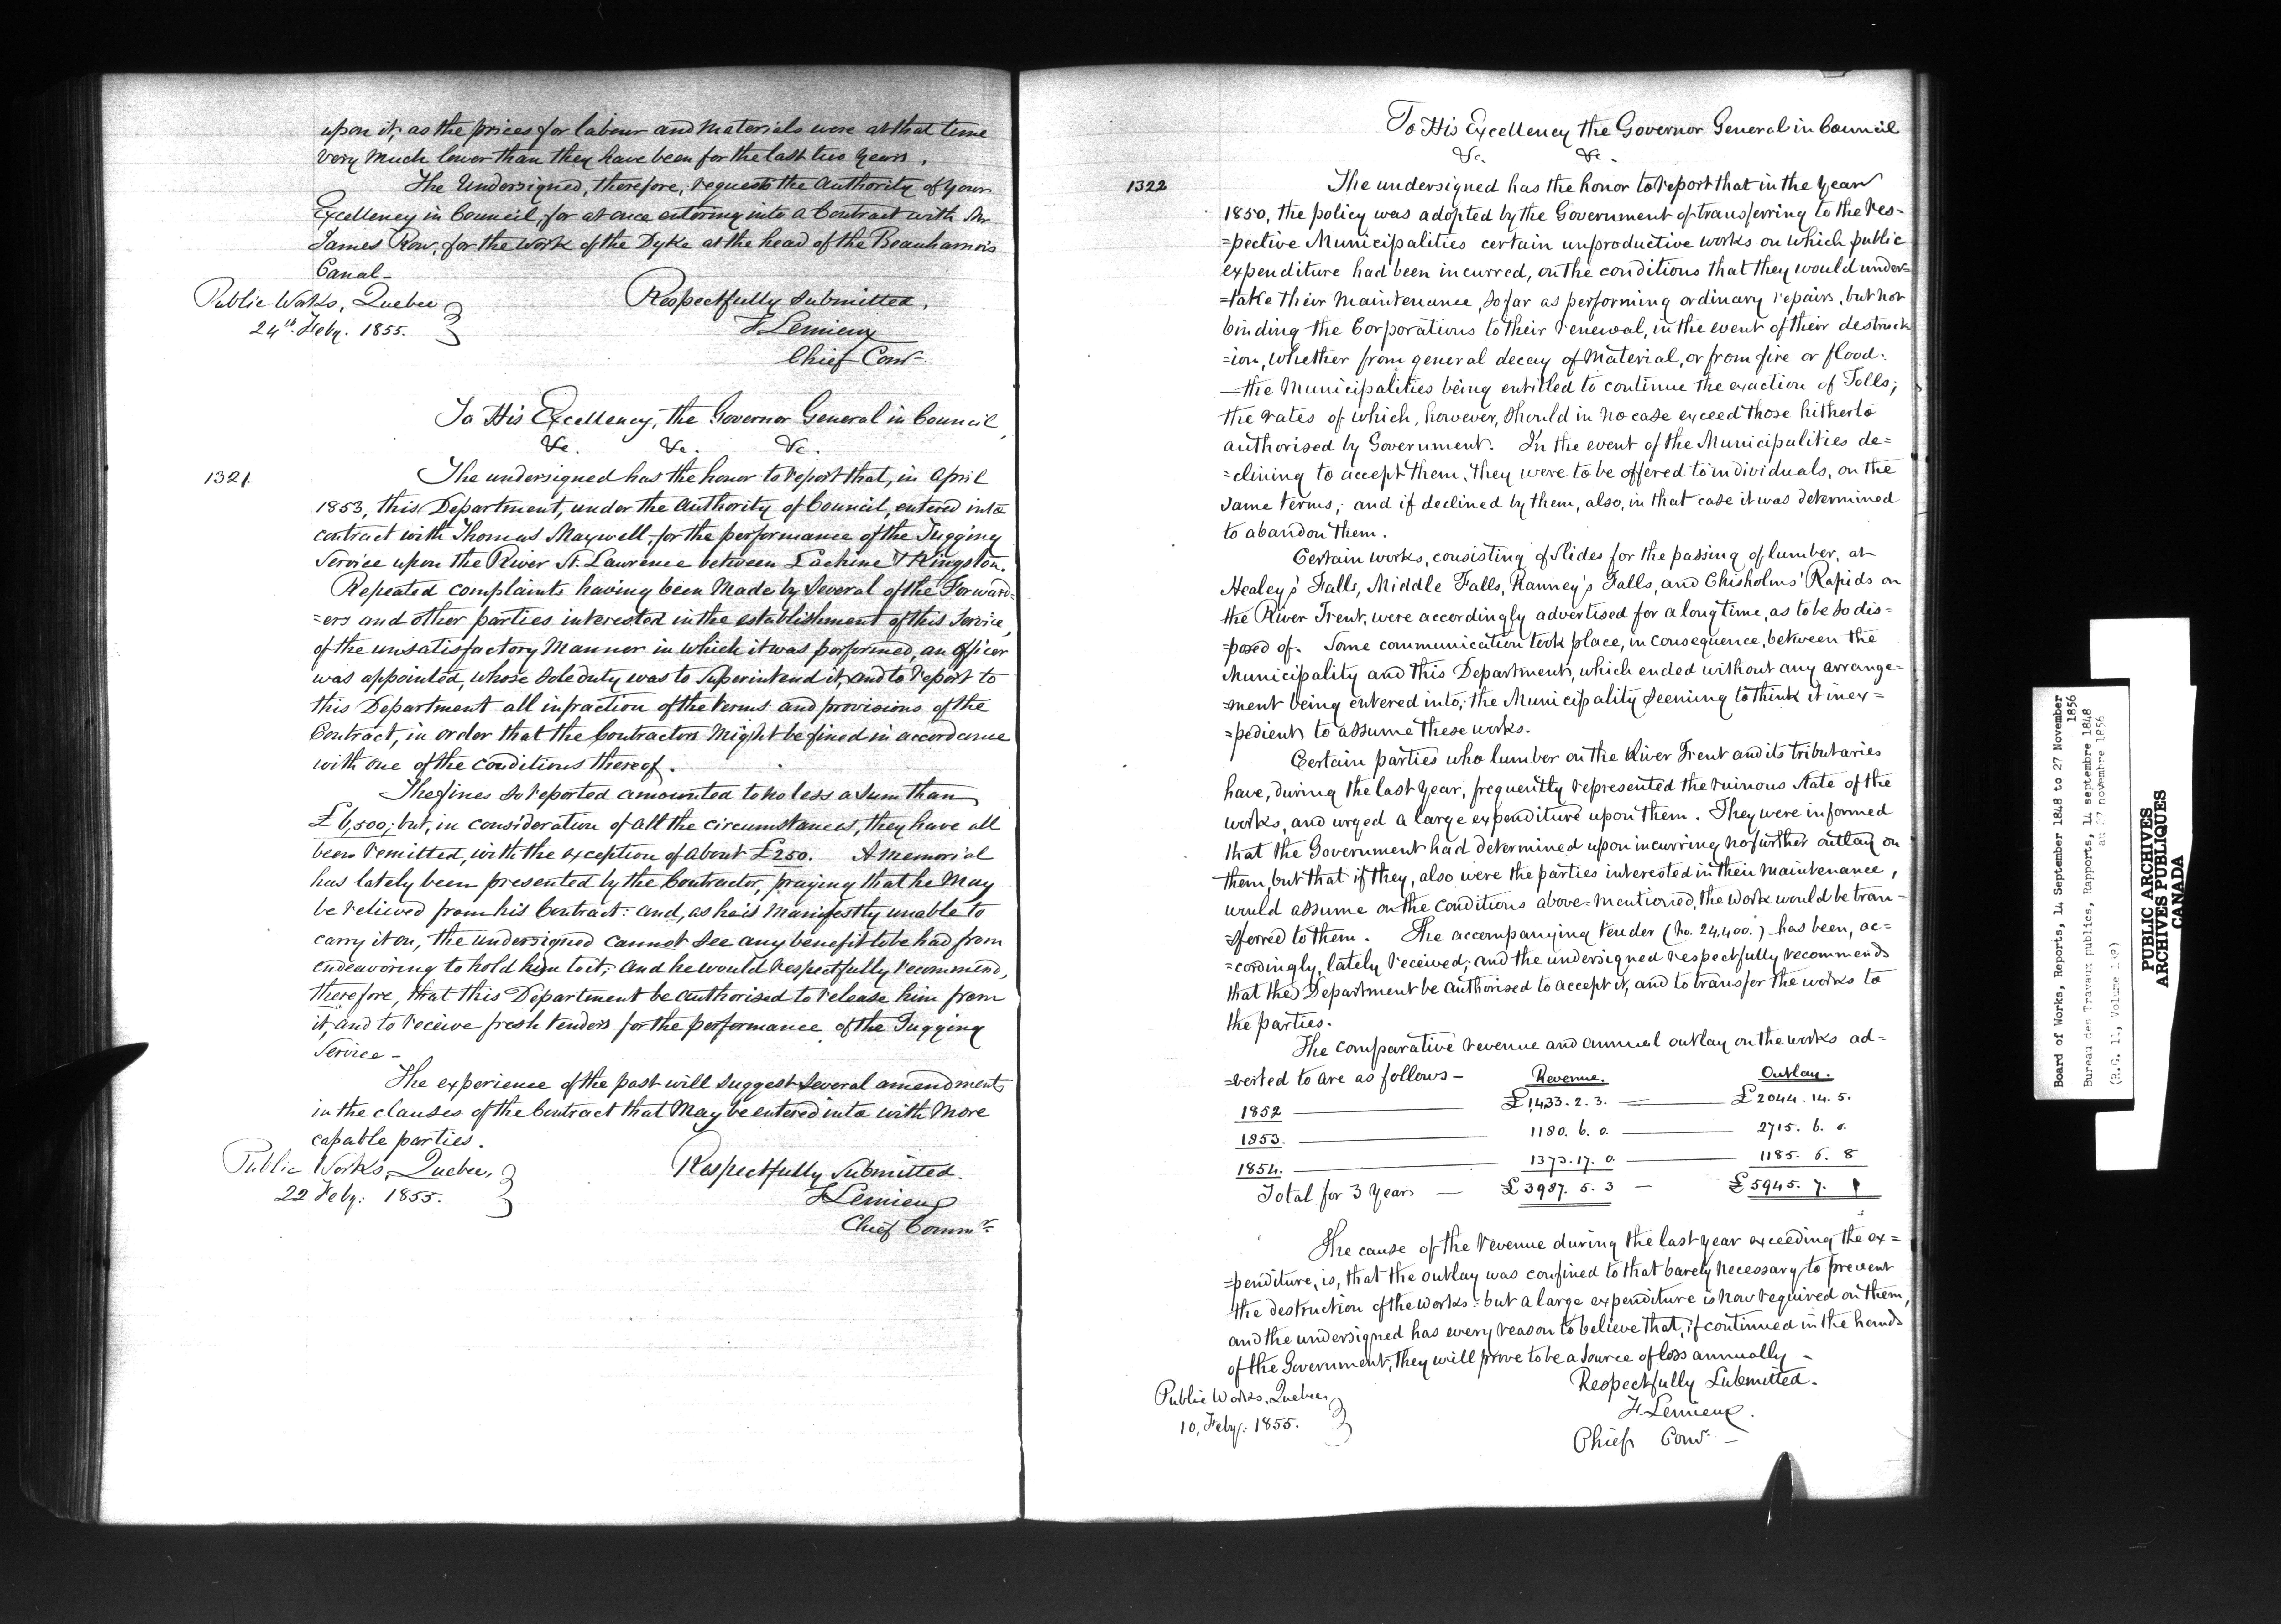 upon it; as the prices for labour and materials were at that time
very much lower than they have been for the last two years.
The Undersigned, therefore, requests the Authority of Your
Excellency in Council, for at once entering into a Contract with Mr
James Row, for the work of the Dyke at the head of the Beauharnois
Canal_
Public Works, Quebec
24th Feby. 1855.
Respectfully submitted.
F Lemieux
Chief Comr
To His Excellency, the Governor General in Council,
&c. &c. &c.
1321.
The undersigned has the honor to report that, in April
1853, this Department, under the Authority of Council, entered into
contract with Thomas Maxwell, for the performance of the Tugging
Service upon the River St. Lawrence between Lachine & Kingston.
Repeated complaints having been made by several of the Forward=
=ers and other parties interested in the establishment of this Service,
of the unsatisfactory manner in which it was performed, an officer
was appointed, whose sole duty was to Superintend it, and to report to
this Department all infraction of the terms and provisions of the
Contract, in order that the Contractors might be fined in accordance
with one of the conditions thereof.
The fines so reported amounted to no less a sum than
£6,500; but, in consideration of all the circumstances, they have all
been remitted, with the exception of about £250. A Memorial
has lately been presented by the Contractor, praying that he may
be relieved from his Contract: and, as he is manifestly unable to
carry it on, the undersigned cannot see any benefit to be had from
endeavoring to hold him to it; and he would respectfully recommend,
therefore, that this Department be authorised to release him from
it, and to receive fresh tenders for the performance of the Tugging
Service_
The experience of the past will suggest several amendments
in the clauses of the Contract that may be entered into with more
capable parties.
Public Works, Quebec,
22 Feby: 1855.
Respectfully Submitted.
F Lemieux
Chief Commr
To His Excellency the Governor General in Council
&c. &c.
1322
The undersigned has the honor to report that in the year
1850, the policy was adopted by the Government of transferring to the res=
=pective Municipalities certain unproductive works on which public
expenditure had been incurred, on the conditions that they would under=
=take their maintenance, so far as performing ordinary repairs, but not
binding the Corporations to their renewal, in the event of their destruct
=ion, whether from general decay of Material, or from fire or flood:
_the Municipalities being entitled to continue the exaction of Tolls;
the rates of which, however, should in no case exceed those hitherto
authorised by Government. In the event of the Municipalities de=
=clining to accept them, they were to be offered to individuals, on the
same terms; and if declined by them, also, in that case it was determined
to abandon them.
Certain works, consisting of Slides for the passing of lumber, at
Healey's Falls, Middle Falls, Ranney's Falls, and Chisholms' Rapids on
the River Trent, were accordingly advertised for a long time, as to be so dis=
=posed of. Some communication took place, in consequence, between the
Municipality and this Department, which ended without any arrange=
=ment being entered into; the Municipality seeming to think it inex=
=pedient to assume these works.
Certain parties who lumber on the River Trent and its tributaries
have, during the last year, frequently represented the ruinous state of the
works, and urged a large expenditure upon them. They were informed
that the Government had determined upon incurring no further outlay on
them, but that if they, also were the parties interested in their maintenance,
would assume on the conditions above-mentioned, the work would be tran=
=sferred to them. The accompanying tender (No. 24,400.) has been, ac=
=cordingly, lately received; and the undersigned respectfully recommends
that the Department be authorised to accept it, and to transfer the works to
the parties.
The comparative revenue and annual outlay on the works ad=
=verted to are as follows_ Revenue. Outlay.
1852 £1,433. 2. 3. £2044. 14. 5.
1853. 1180. 6. 0. 2715. 6. 0.
1854. 1373. 17. 0 1185. 6. 8
Total for 3 Years £3987. 5. 3 £5945. 7. 1
The cause of the revenue during the last year exceeding the ex=
=penditure, is, that the outlay was confined to that barely necessary to prevent
the destruction of the works: but a large expenditure is now required on them,
and the undersigned has every reason to believe that, if continued in the hands
of the Government, they will prove to be a source of loss annually_
Public Works, Quebec,
10, Feby: 1855.
Respectfully Submitted.
F. Lemieux.
Chief Comr
Board of Works, Reports, 14 September 1848 to 27 November
1856
Bureau des Travaux publics, Rapports, 14 septembre 1848
au 27 novembre 1856
(R.G. 11, Volume 1
PUBLIC ARCHIVES
ARCHIVES PUBLIQUES
CANADA